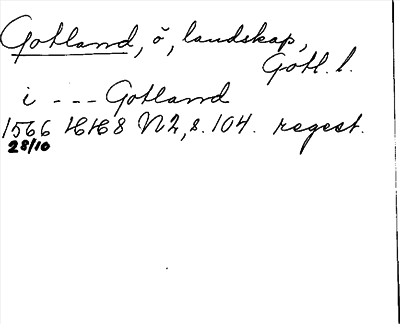 Gotland, ö, landskap,
Gotl. l.
i --- Gotland
1566 HH8 N2, s. 104. regest.
28/10